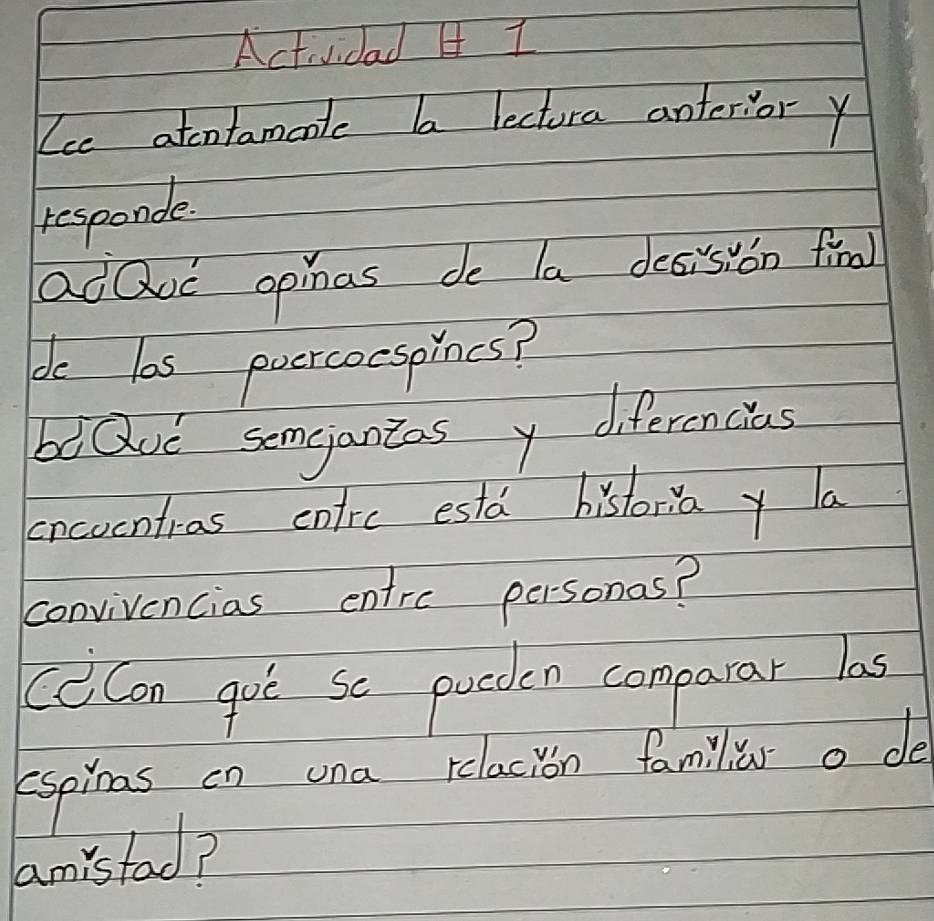 Actividad # 1
Lee atentamente la lectura anterior y
responde.
a¿Qué opinas de la desisión final
de los puercoespines?
b¿Qué semejanzas y diferencias
encuentras entre está historia y la
convivencias entre personas?
c¿Con qué se pueden comparar las
espinas en una relación familiar o de
amistad?